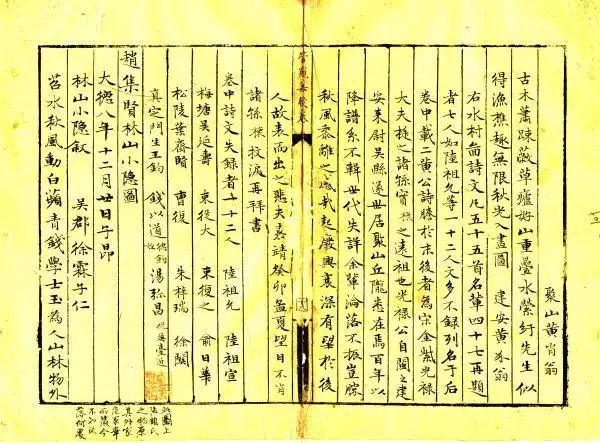 聚山黄肖翁
古木蕭疎蔽草廬好山重疊水縈紆先生似
得漁樵趣無限秋光入畫圖 建安黄公翁
右水村啚詩文凡五十五首名軰四十七再題
者七人如陸祖允等一十二人文多不録列名于后
卷中載二黄公詩牘於末後者為宗金紫光禄
大夫挺之諸孫實穟之遠祖也光禄公自閩之建
安来尉吳縣遂世居聚山丘隴悉在焉百年以
降譜系不輯世代失詳余軰淪落不振豈勝
秋風黍離之感哉起廢興衰深有望於後
人故表而出之悲夫嘉靖癸卯孟夏望日不肖
諸孫穟抆淚再拜書
卷中詩文失録者一十二人 陸祖允 陸祖宣
梅塘吳延壽 束從大 束復之 俞日華
松陵葉齋賢 曹復 朱梓瑞 徐關
真定門生王鈞 錢以道 湯弥昌
趙集賢林山小隱圖
大德八年十二月廿日子昂
林山小隱叙 吳郡徐霖子仁
苕水秋風動白蘋青錢學士玉為人山林物外